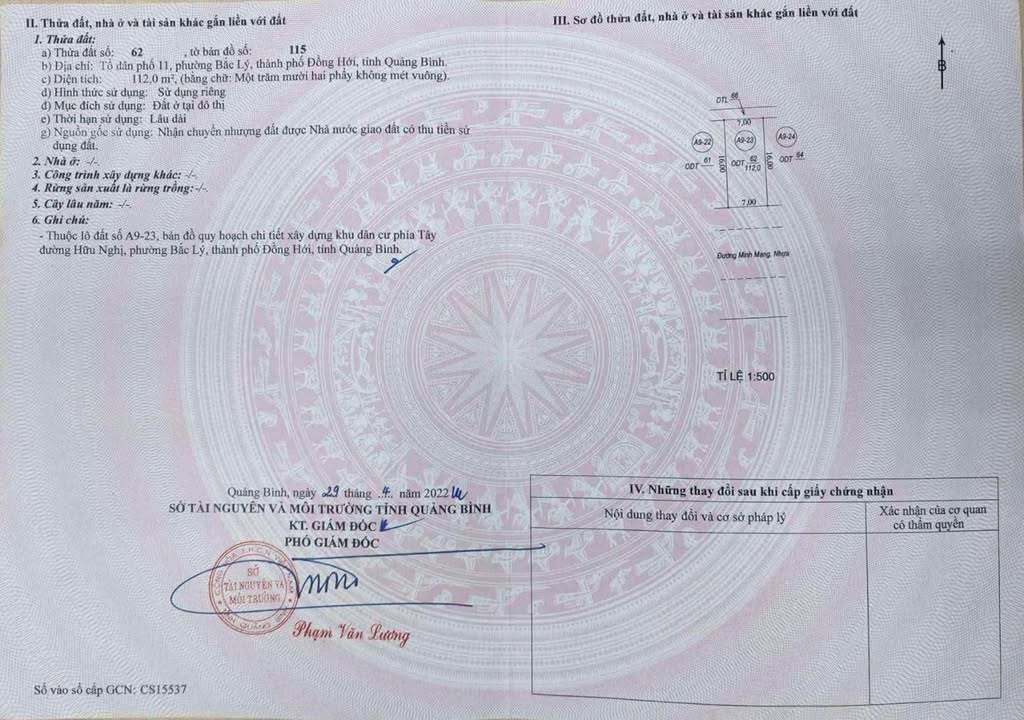 II. Thửa đất, nhà ở và tài sản khác gắn liền với đất
1. Thửa đất:
a) Thửa đất số: 62 , tờ bản đồ số: 115
b) Địa chỉ: Tổ dân phố 11, phường Bắc Lý, thành phố Đồng Hới, tỉnh Quảng Bình.
c) Diện tích: 112,0 m², (bằng chữ: Một trăm mười hai phẩy không mét vuông).
d) Hình thức sử dụng: Sử dụng riêng
đ) Mục đích sử dụng: Đất ở tại đô thị
e) Thời hạn sử dụng: Lâu dài
g) Nguồn gốc sử dụng: Nhận chuyển nhượng đất được Nhà nước giao đất có thu tiền sử
dụng đất.
2. Nhà ở: -/-.
3. Công trình xây dựng khác: -/-.
4. Rừng sản xuất là rừng trồng:-/-.
5. Cây lâu năm: -/-.
6. Ghi chú:
- Thuộc lô đất số A9-23, bản đồ quy hoạch chi tiết xây dựng khu dân cư phía Tây
đường Hữu Nghị, phường Bắc Lý, thành phố Đồng Hới, tỉnh Quảng Bình.
Quảng Bình, ngày 29 tháng .4. năm 2022
SỞ TÀI NGUYÊN VÀ MÔI TRƯỜNG TỈNH QUẢNG BÌNH
KT. GIÁM ĐỐC
PHÓ GIÁM ĐỐC
CỘNG HÒA X.H.C.N VIỆT NAM
SỞ
TÀI NGUYÊN VÀ
MÔI TRƯỜNG
TỈNH QUẢNG BÌNH
Phạm Văn Lương
Số vào sổ cấp GCN: CS15537
III. Sơ đồ thửa đất, nhà ở và tài sản khác gắn liền với đất
B
DTL 66
7,00
A9-22
A9-23
A9-24
ODT 61
16,00
ODT 62
112,0
16,00
ODT 64
7,00
Đường Minh Mạng, Nhựa
TỈ LỆ 1:500
IV. Những thay đổi sau khi cấp giấy chứng nhận
Nội dung thay đổi và cơ sở pháp lý
Xác nhận của cơ quan
có thẩm quyền